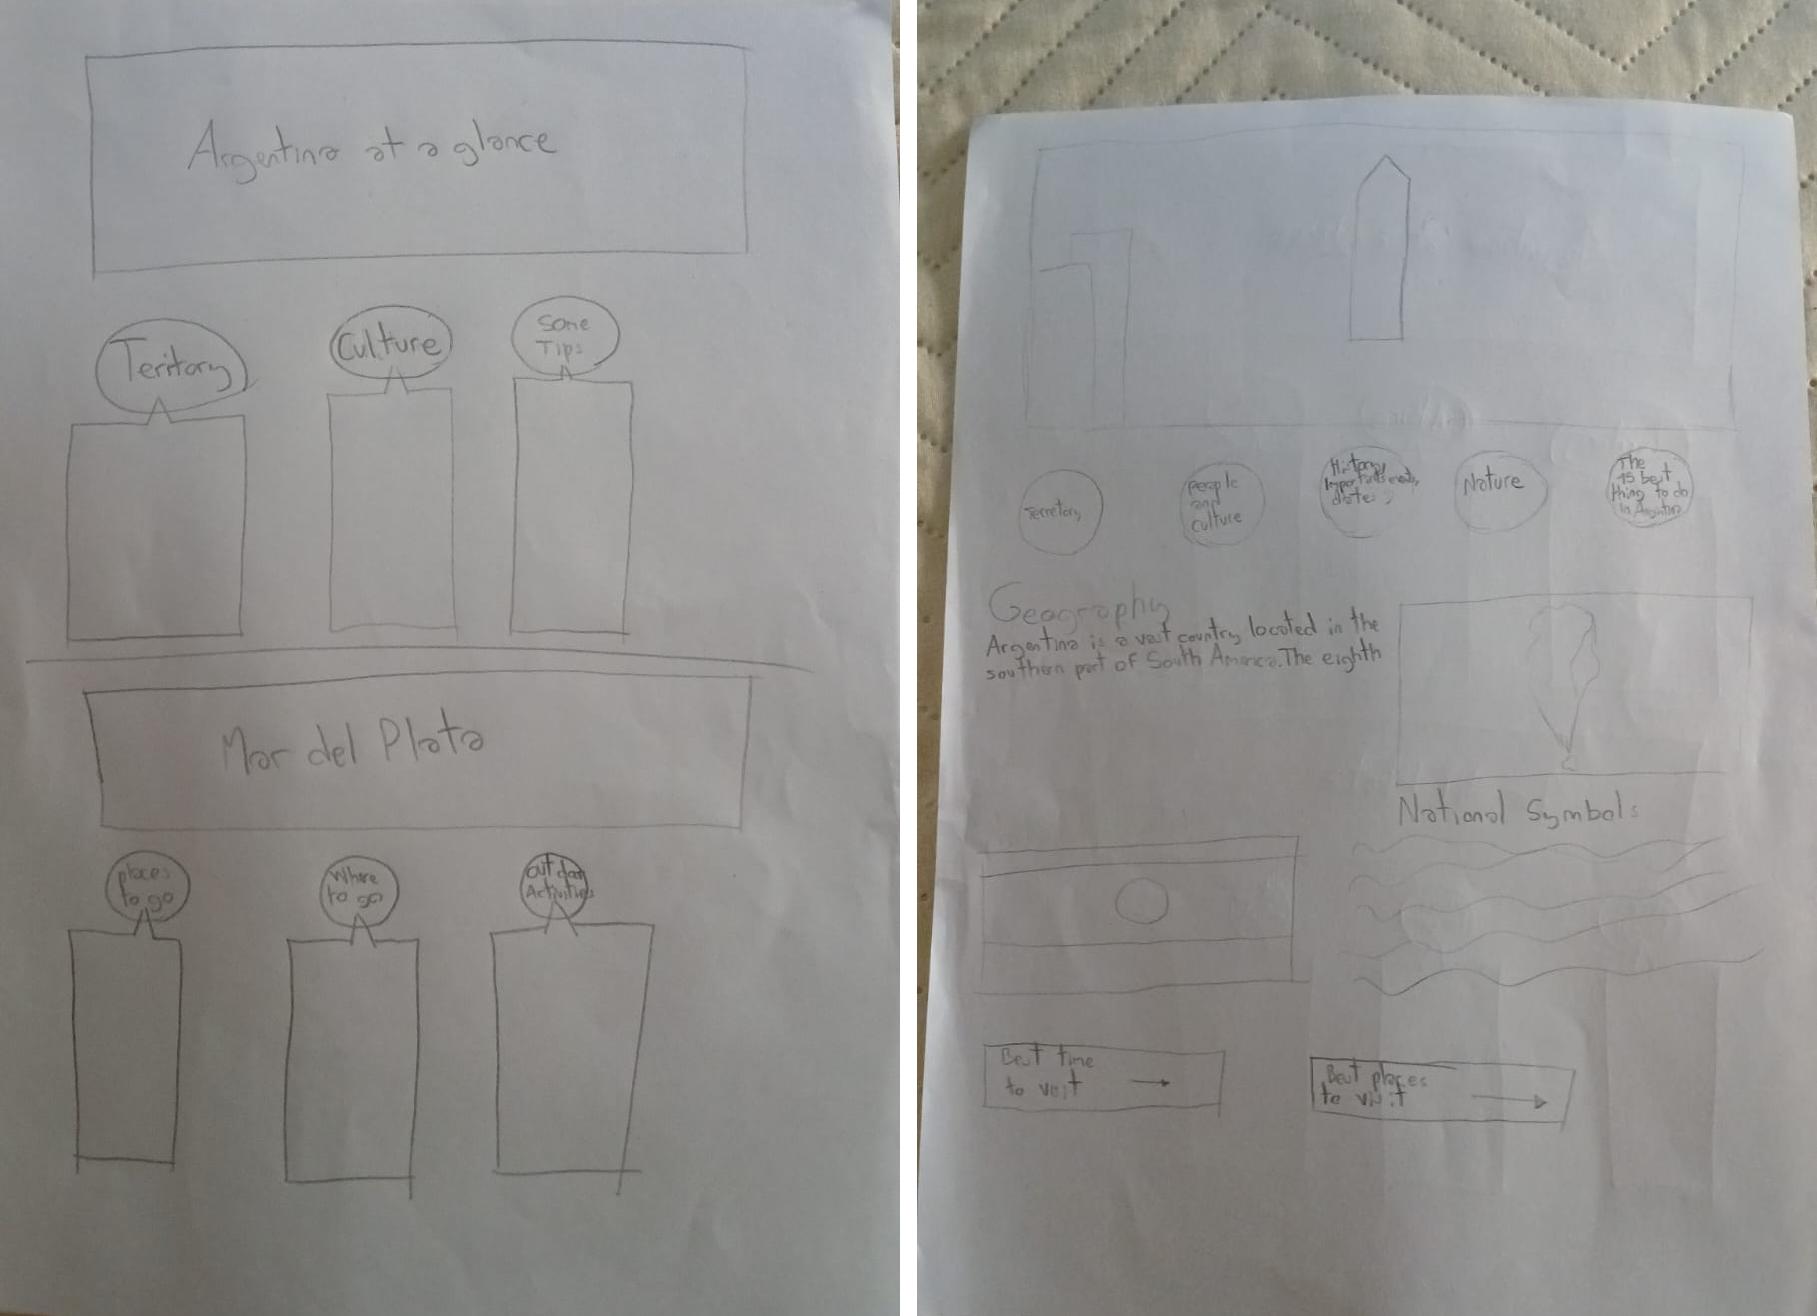 Argentina at a glance
Teritory
Culture
Some
Tips
Mar del Plata
places
to go
Where
to go
out door
Activities
people
and
culture
History
dates
Nature
The
15 best
thing to do
in Argentina
Geography
Argentina is a vast country located in the
southern part of South America. The eighth
National Symbols
Best time
to visit
Best places
to visit